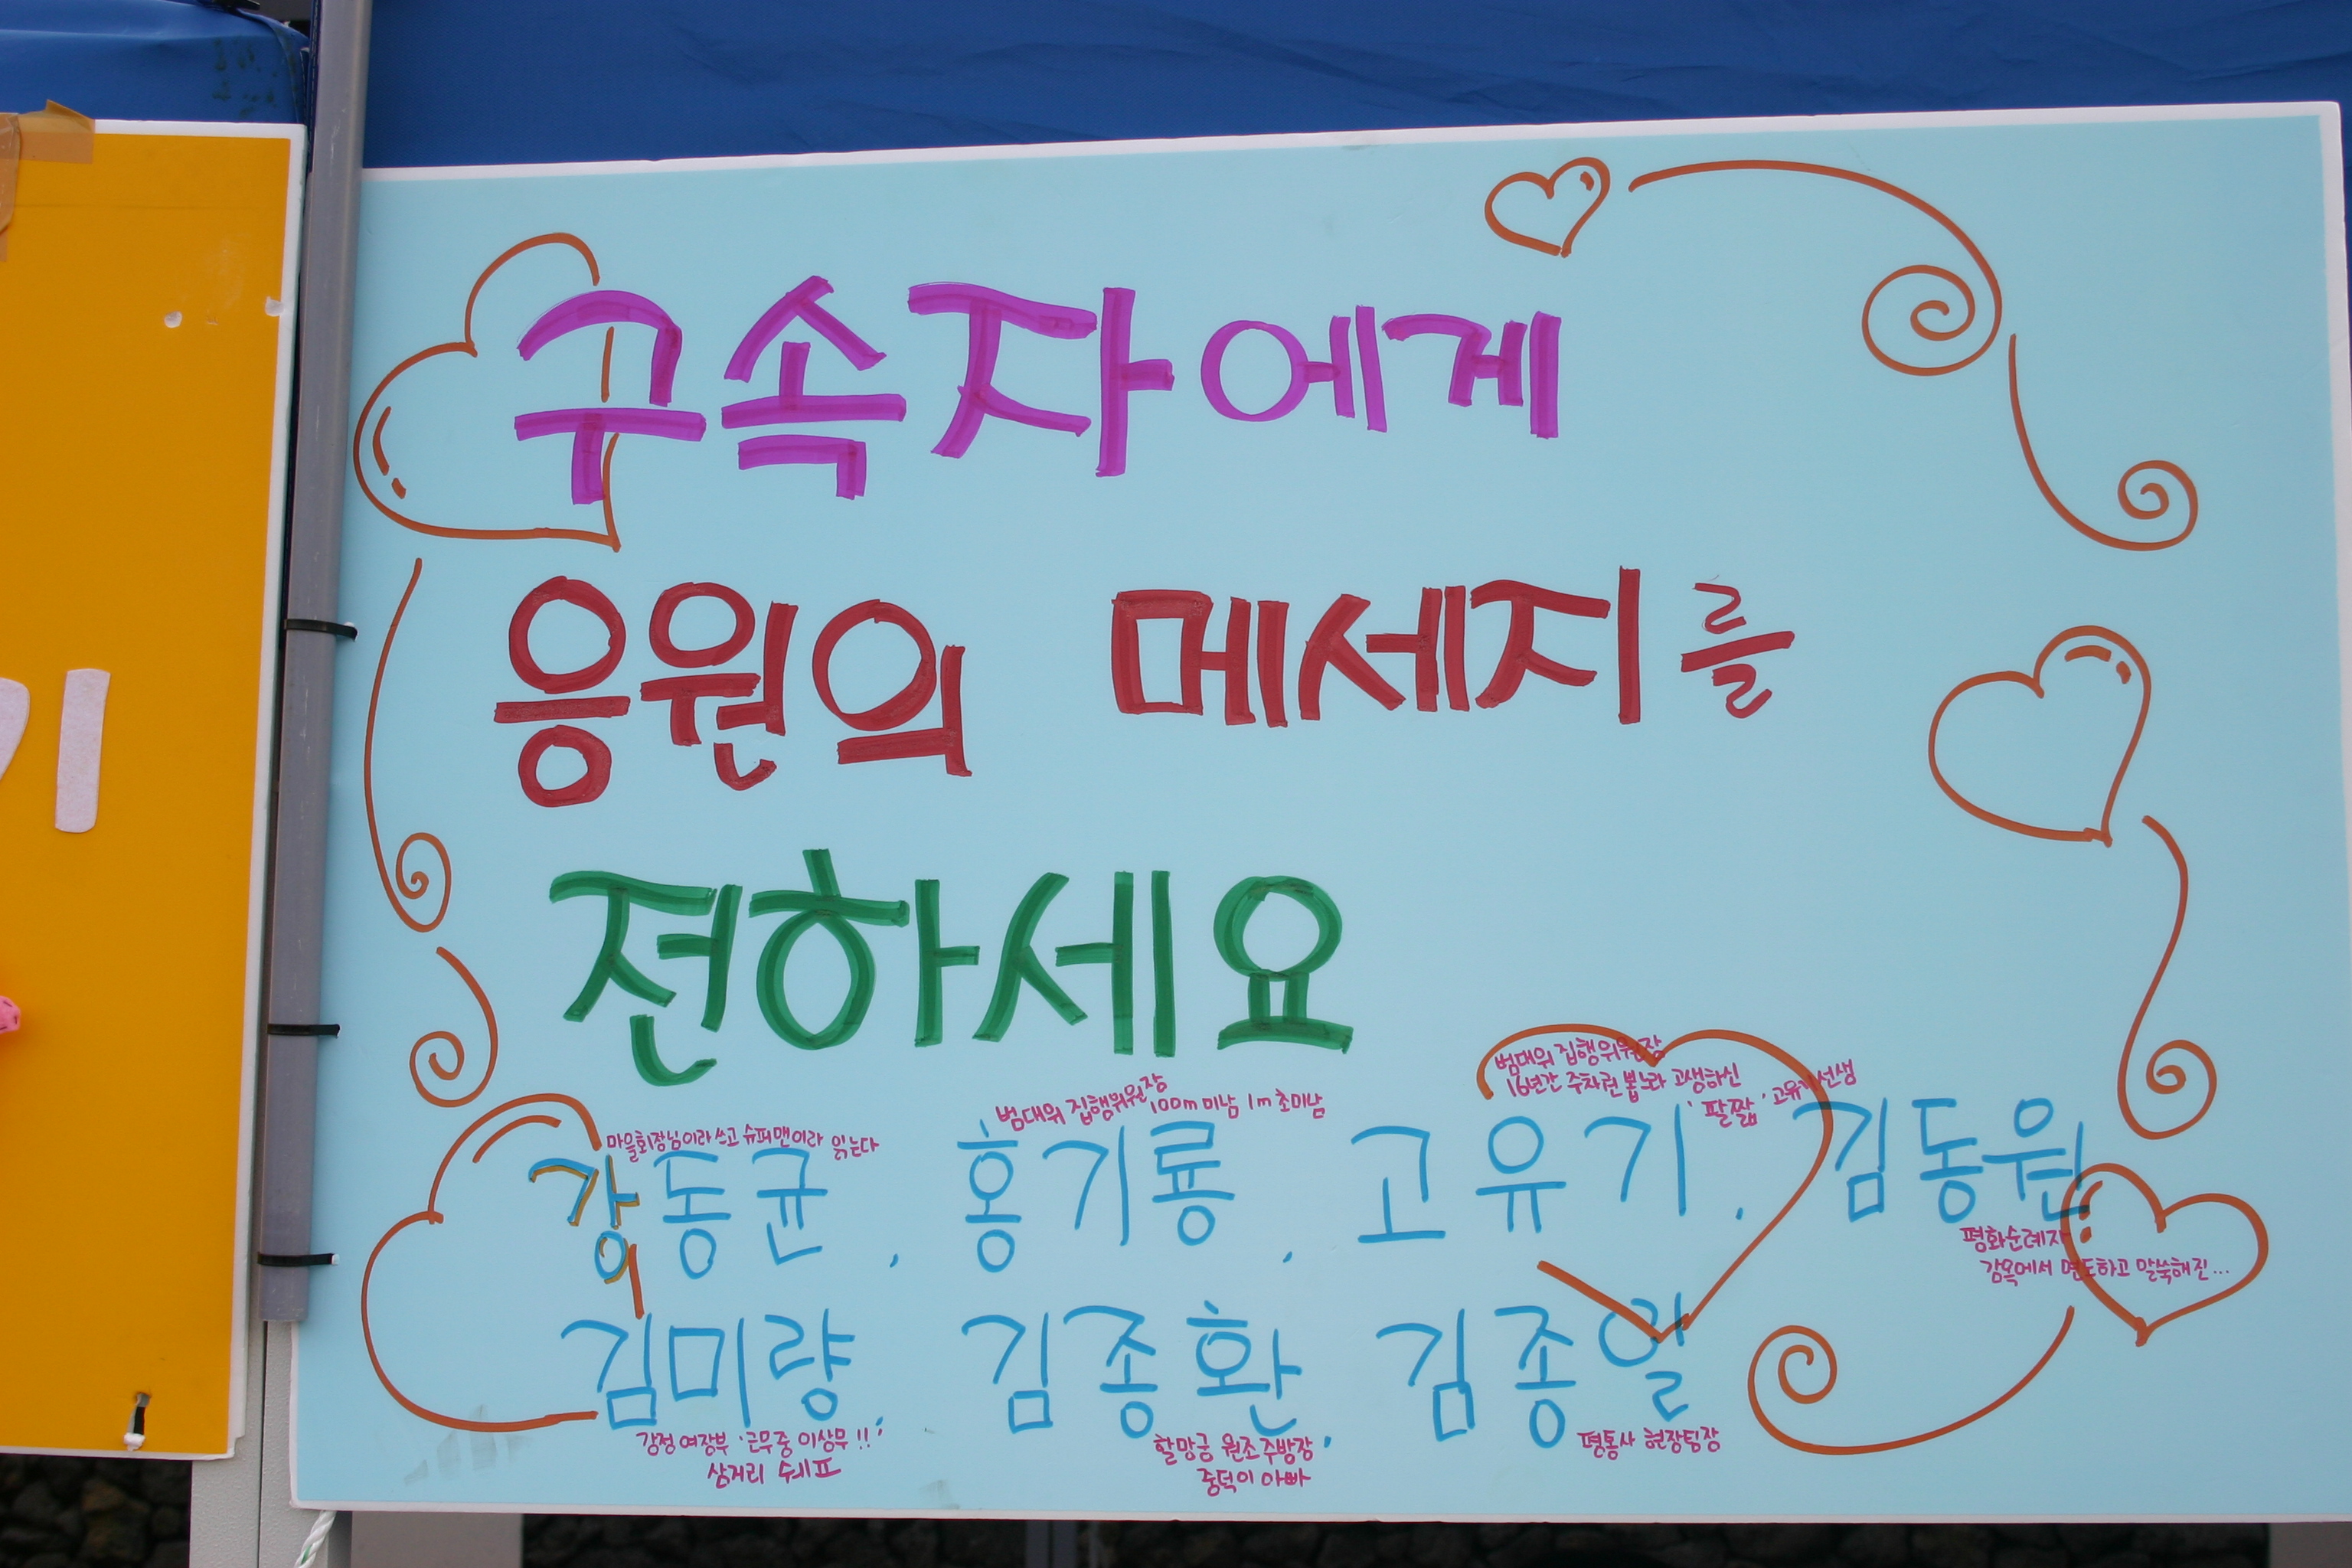 구속자에게
응원의 메세지를
전하세요
마을회장님이라 쓰고 슈퍼맨이라 읽는다
강동균,
범대위 집행위원장
100m 미남 1m 초미남
홍기룡,
범대위 집행위원장
16년간 주차권 뽑느라 고생하신
'팔짧' 고유기 선생
고유기.
김동원
평화순례자
감옥에서 면도하고 말쑥해진...
김미량,
강정 여장부 '근무중 이상무!!'
삼거리 쉐프
김종환,
할망금 원조주방장
중덕이 아빠
김종일
평통사 현장팀장